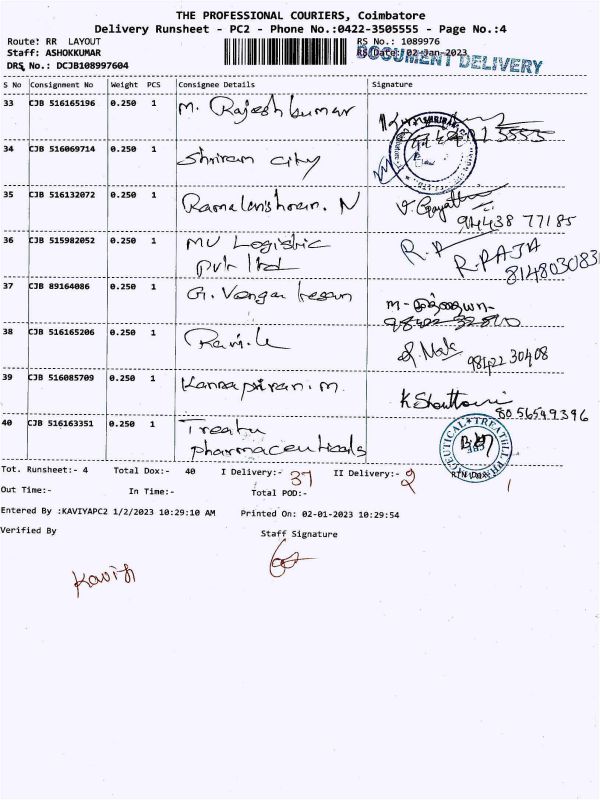 THE PROFESSIONAL COURIERS, Coimbatore
Delivery Runsheet - PC2 - Phone No.:0422-3505555 - Page No.:4
Route: RR LAYOUT
RS No.: 1089976
Staff: ASHOKKUMAR
RS Date: 02-Jan-2023
DOCUMENT DELIVERY
DRS No.: DCJB108997604
S No Consignment No Weight PCS Consignee Details Signature
33 CJB 516165196 0.250 1 M. Rajeshkumar
34 CJB 516069714 0.250 1 Shriram City
35 CJB 516132072 0.250 1 N V. Gayathri
94438 77185
36 CJB 515982052 0.250 1 MU Logistic
Pvt ltd
R.P R.RAJA
814803083
37 CJB 89164086 0.250 1 G. M-
38 CJB 516165206 0.250 1
98422 30408
39 CJB 516085709 0.250 1 M.
8056599396
40 CJB 516163351 0.250 1 Treatu
pharmaceuticals
Tot. Runsheet:- 4 Total Dox:- 40 I Delivery:- 37 II Delivery:- 2 RTN Dox:- 1
Out Time:- In Time:- Total POD:-
Entered By :KAVIYAPC2 1/2/2023 10:29:10 AM Printed On: 02-01-2023 10:29:54
Verified By Staff Signature